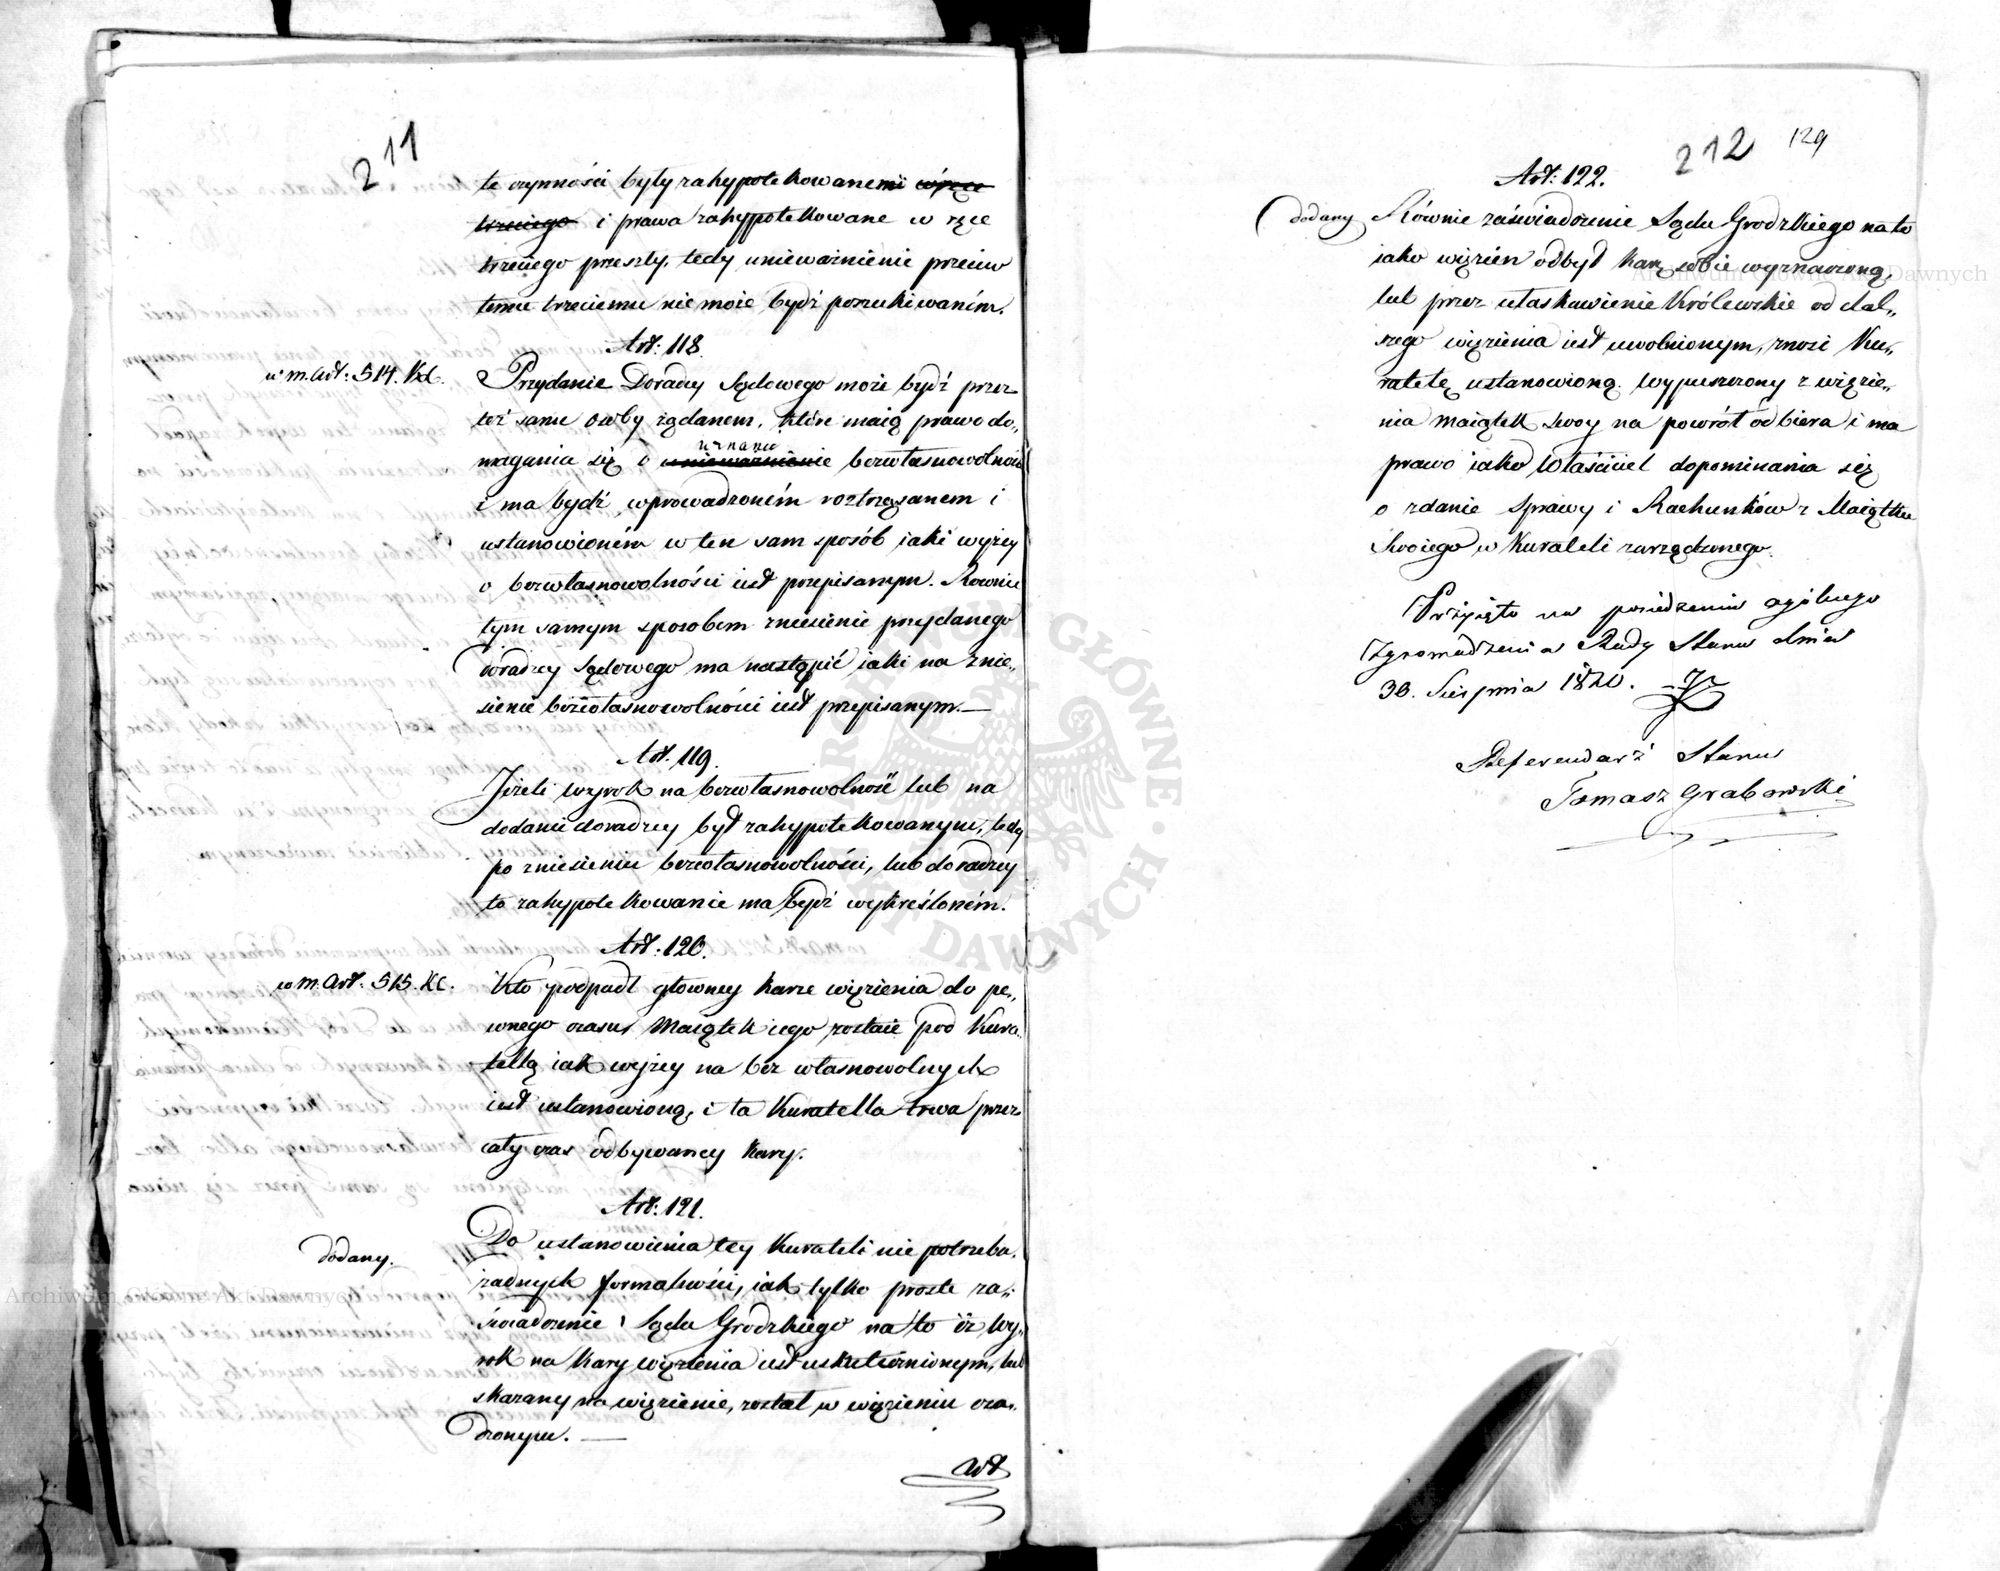 211
te czynności były zahypotekowanemi ~~w ręce~~
~~trzeciego~~ i prawa zahypotekowane w ręce
trzeciego przeszły, tedy unieważnienie przeciw
temu trzeciemu nie może bydź poszukiwaném.
Art: 118.
w m. art: 514. KC.
Przydanie Doradcy Sądowego może bydź przez
też same osoby żądanem, które maią prawo do„
uznanie
magania się o ~~unieważnienie~~ bezwłasnowolności
i ma bydź wprowadzoném roztrząsanem i
ustanowioném w ten sam sposób iaki wyżey
o bezwłasnowolności iest przepisanym. Rownie
tym samym sposobem zniesienie przydanego
doradzcy Sądowego ma nastąpić iaki na znie„
sienie bezwłasnowolności iest przepisanym.—
Art. 119.
Jeżeli wyrok na bezwłasnowolność lub na
dodanie doradzcy był zahypotekowanym, tedy
po zniesieniu bezwłasnowolności, lub doradzcy
to zahypotekowanie ma bydź wykreśloném.
Art. 120.
w m. art. 515. KC.
Kto podpadł głowney karze więzienia do pe„
wnego czasu Maiątek iego zostaie pod Kura„
tellą iak wyżey na bez własnowolnych
iest ustanowioną, i ta Kuratella trwa przez
cały czas odbywaney kary.
Art: 121.
dodany.
Do ustanowienia tey Kurateli nie potrzeba
żadnych formalności, iak tylko proste za„
świadczenie Sądu Grodzkiego na to iż wy„
rok na kary więzienia iest uskutecznionym, lub
skazany na więzienie, został w więzieniu osa„
dzonym. —
Art
212 129
Art: 122.
dodany
Równie zaświadczenie Sądu Grodzkiego na to
iako więzień odbył karę sobie wyznaczoną,
lub przez ułaskawienie Królewskie od dal„
szego więzienia iest uwolnionym, znosi Ku„
ratelę ustanowioną. Wypuszczony z więzie„
nia maiątek swoy na powrót odbiera i ma
prawo iako Właściciel dopominania się
o zdanie Sprawy i Rachunków z Maiątku
Swoiego w Kurateli zarządzonego.
Przyięto na posiedzeniu ogólnego
Zgromadzenia Rady Stanu dnia
30. Sierpnia 1820.
Referendarz Stanu
Tomasz Grabowski
ARCHIWUM GŁÓWNE AKT DAWNYCH
Archiwum Główne Akt Dawnych
Archiwum Główne Akt Dawnych